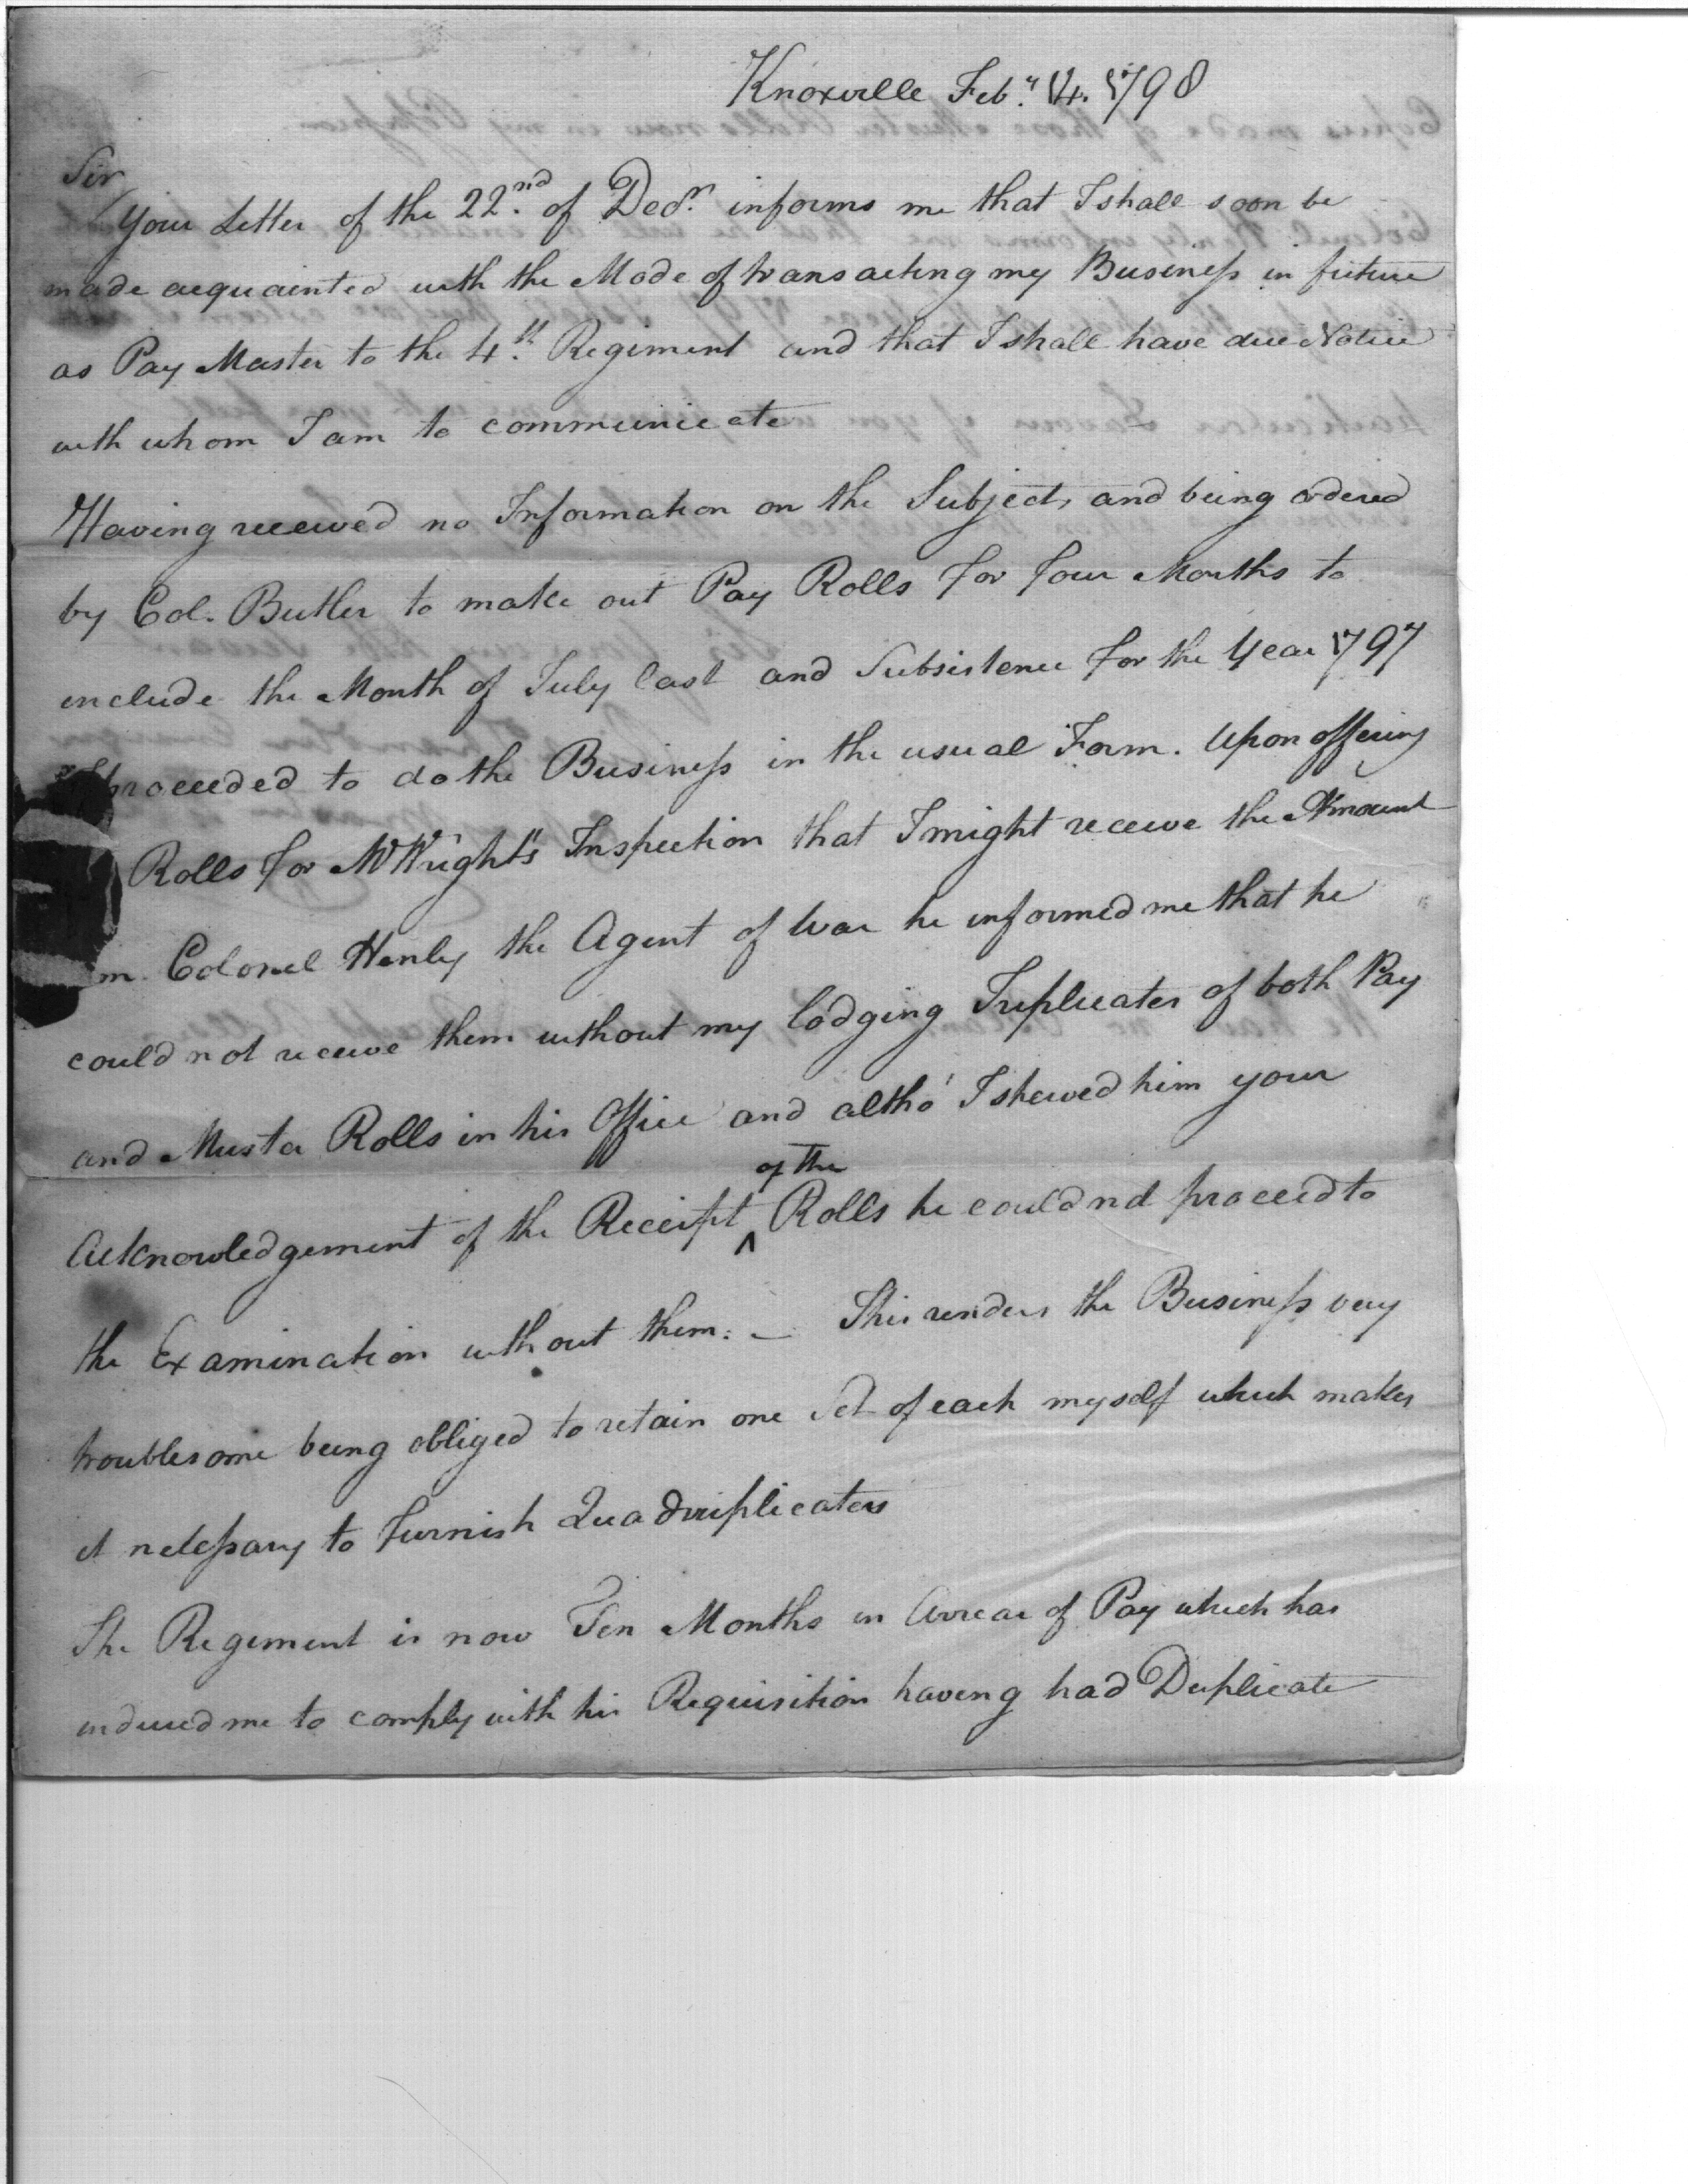 Knoxville Feby. 14. 1798
Sir
Your Letter of the 22nd. of Decr. informs me that I shall soon be
made acquainted with the Mode of transacting my Business in future
as Pay Master to the 4th. Regiment and that I shall have due Notice
with whom I am to communicate
Having received no Information on the Subject, and being ordered
by Col. Butler to make out Pay Rolls for four Months to
include the Month of July last and Subsistence for the Year 1797
I proceeded to do the Business in the usual Form. Upon offering
Rolls for Mr Wright's Inspection that I might receive the Amount
m Colonel Henly the Agent of War he informed me that he
could not receive them without my lodging Triplicates of both Pay
and Muster Rolls in his Office and altho' I shewed him your
Acknowledgement of the Receipt ^ of the Rolls he could not proceed to
the Examination without them. - This renders the Business very
troublesome being obliged to retain one Set of each myself which makes
it necessary to furnish Quadruplicates
The Regiment is now Ten Months in Arrear of Pay which has
induced me to comply with his Requisition having had Duplicate